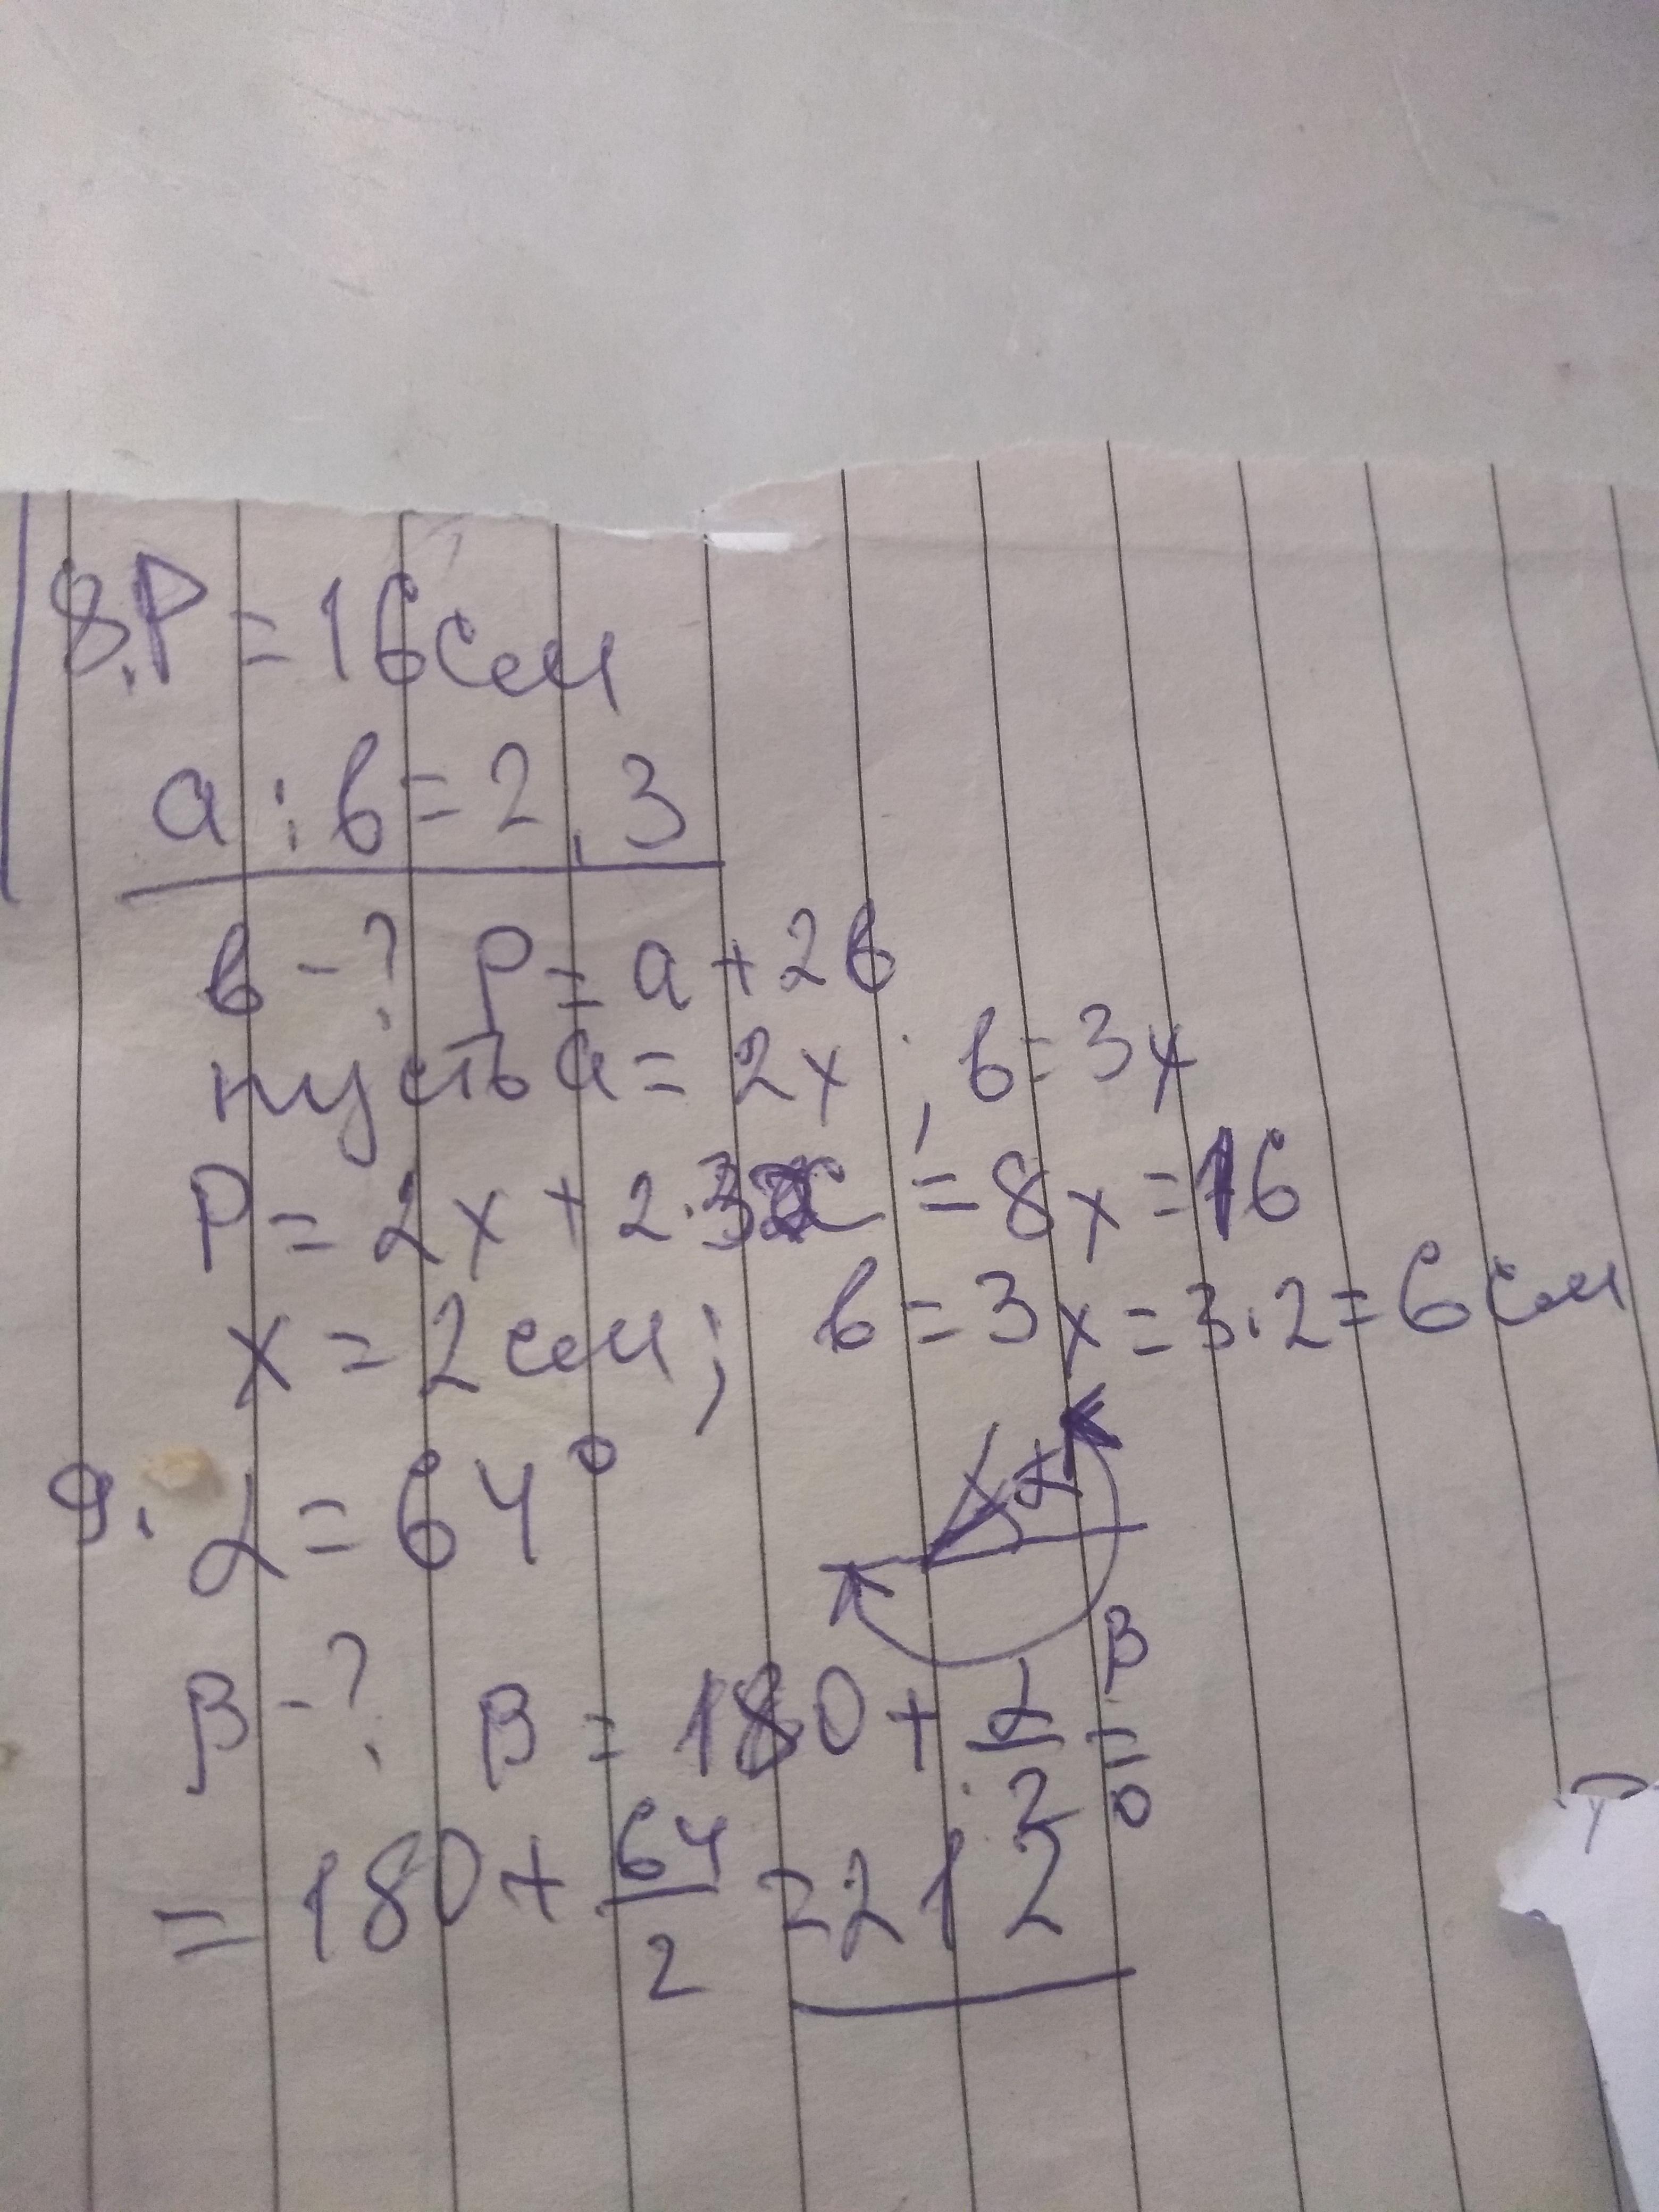 8. P = 16 см
a : b = 2 : 3
b - ? P = a + 2b
пусть a = 2x ; b = 3x
P = 2x + 2·3x = 8x = 16
x = 2 см ; b = 3x = 3·2 = 6 см
9. α = 64°
α
β
β - ? β = 180 + α/2 =
= 180 + 64/2 = 212°